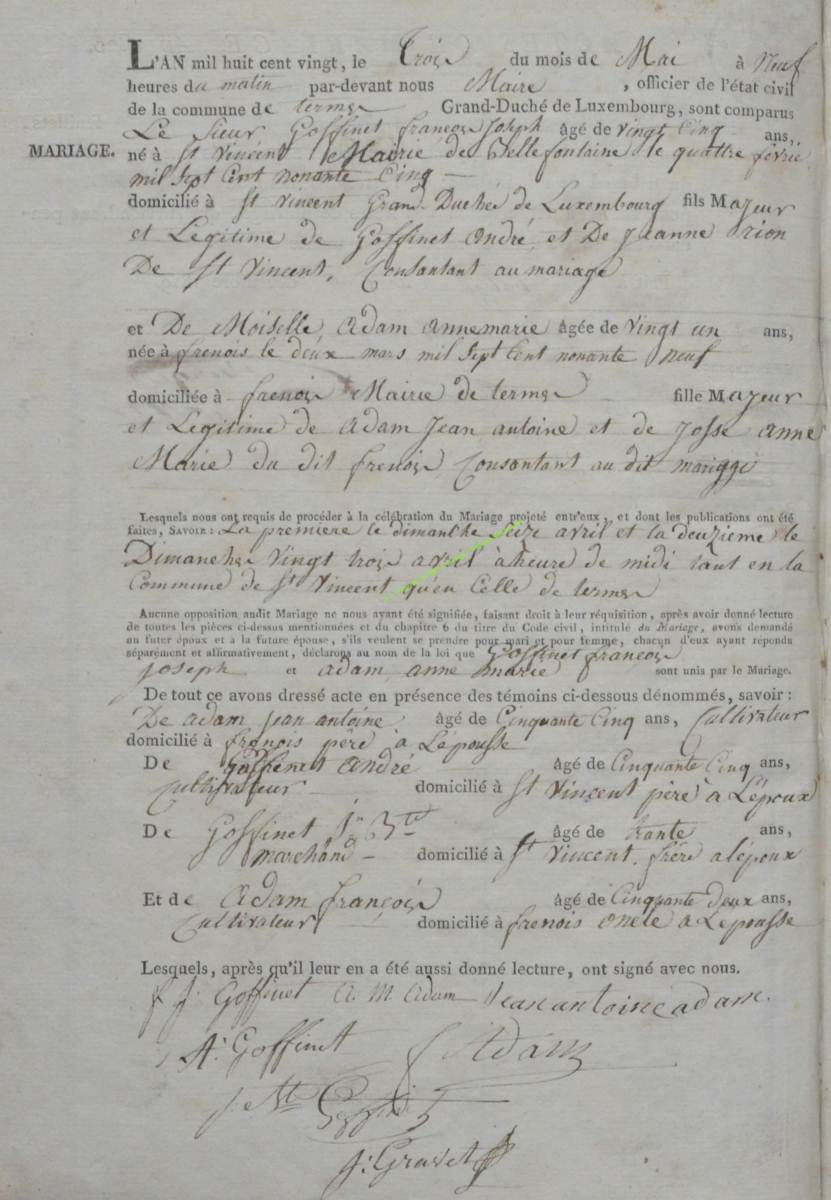 L'AN mil huit cent vingt, le Trois du mois de Mai à Neuf
heures du matin par-devant nous Maire , officier de l'état civil
de la commune de termes Grand-Duché de Luxembourg, sont comparus
Le Sieur Goffinet françois Joseph âgé de vingt Cinq ans,
MARIAGE.
né à St Vincent Mairie de Bellefontaine le quatre févrie
mil sept Cent nonante Cinq
domicilié à St Vincent Grand Duché de Luxembourg fils Majeur
et Legitime de Goffinet André et De Jeanne rion
De St Vincent, Consantant au mariage
et De Moiselle Adam annemarie âgée de vingt un ans,
née à frenois le deux mars mil Sept Cent nonante neuf
domiciliée à frenois Mairie de termes fille Majeur
et Legitime de Adam Jean antoine et de Josse anne
Marie du dit frenois Consontant au dit mariggé
Lesquels nous ont requis de procéder à la célébration du Mariage projeté entr'eux, et dont les publications ont été
faites, SAVOIR : La premiere le dimanche seize avril et la deuzieme le
Dimanche vingt trois avril à heure de midi tant en la
Commune de St Vincent qu'en Celle de termes
Aucune opposition audit Mariage ne nous ayant été signifiée, faisant droit à leur réquisition, après avoir donné lecture
de toutes les pièces ci-dessus mentionnées et du chapitre 6 du titre du Code civil, intitulé du Mariage, avons demandé
au futur époux et à la future épouse, s'ils veulent se prendre pour mari et pour femme, chacun d'eux ayant répondu
séparément et affirmativement, déclarons au nom de la loi que Goffinet françois
joseph et adam anne marie sont unis par le Mariage.
De tout ce avons dressé acte en présence des témoins ci-dessous dénommés, savoir :
De adam jean antoine âgé de Cinquante Cinq ans, Cultivateur
domicilié à frenois père à Lépousse
De Goffinet André âgé de Cinquante Cinq ans,
Cultivateur domicilié à St Vincent père a Lépoux
De Goffinet Jn Bte âgé de trante ans,
marchand domicilié à St Vincent, frére a lépoux
Et de Adam françois âgé de Cinquante deux ans,
Cultivateur domicilié à frenois oncle a Lépousse
Lesquels, après qu'il leur en a été aussi donné lecture, ont signé avec nous.
f J. Goffinet A. M. Adam Jean antoine adam.
A. Goffinet f Adam
J. Goffinet
J. Gravet